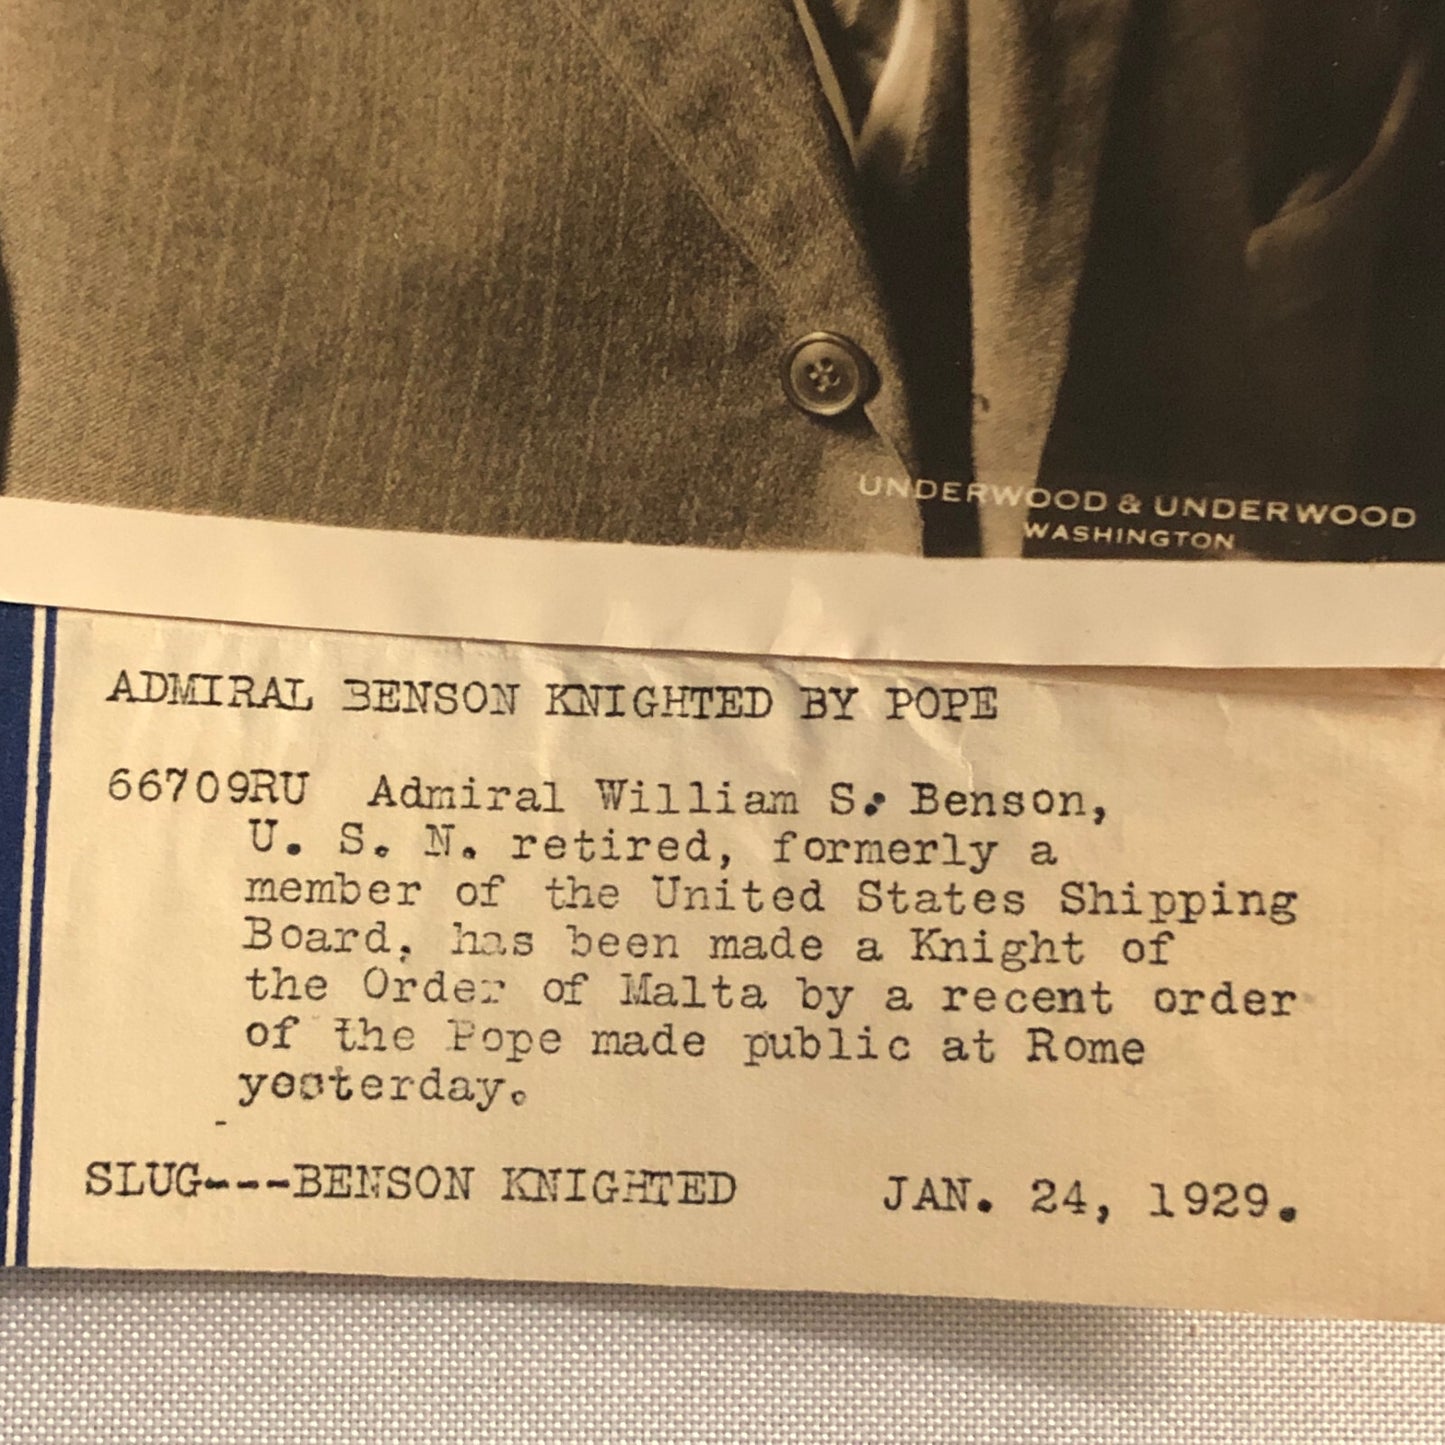 UNDERWOOD & UNDERWOOD
WASHINGTON
ADMIRAL BENSON KNIGHTED BY POPE
66709RU Admiral William S. Benson,
U. S. N. retired, formerly a
member of the United States Shipping
Board, has been made a Knight of
the Order of Malta by a recent order
of the Pope made public at Rome
yesterday.
SLUG---BENSON KNIGHTED JAN. 24, 1929.